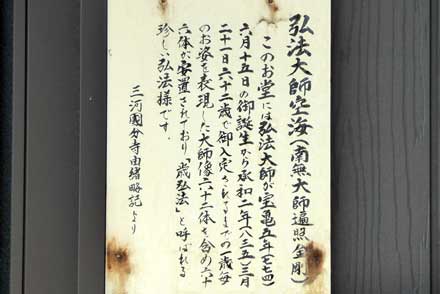 弘法大師空海(南無大師遍照金剛)
このお堂には弘法大師が宝亀五年(七七四)
六月十五日の御誕生から承和二年(八三五)三月
二十一日六十二歳で御入定されるまでの一歳毎
のお姿を表現した大師像六十二体を含め六十
六体が安置されており「歳弘法」と呼ばれる
珍しい弘法様です。
三河國分寺由緒略記より